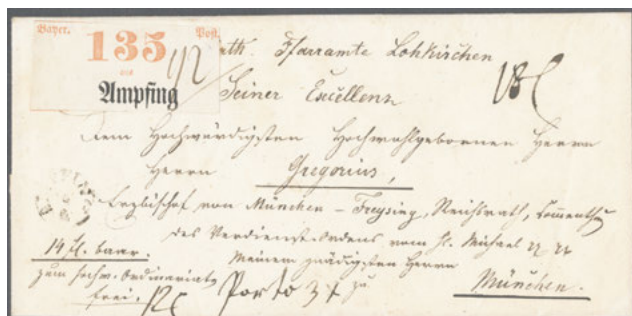 Bayer. 135 Post.
aus
Ampfing
1/2
kath. Pfarramte Lohkirchen
Seiner Excellenz
Dem Hochwürdigsten Hochwohlgebornen Herrn
Herrn Gregorius,
Erzbischof von München – Freysing, Reichsrath,
des Verdienst-Ordens vom hl. Michael
14 fl. baar. Meinem gnädigsten Herrn
zum hochw. Ordinariate zu
frei. Porto München.